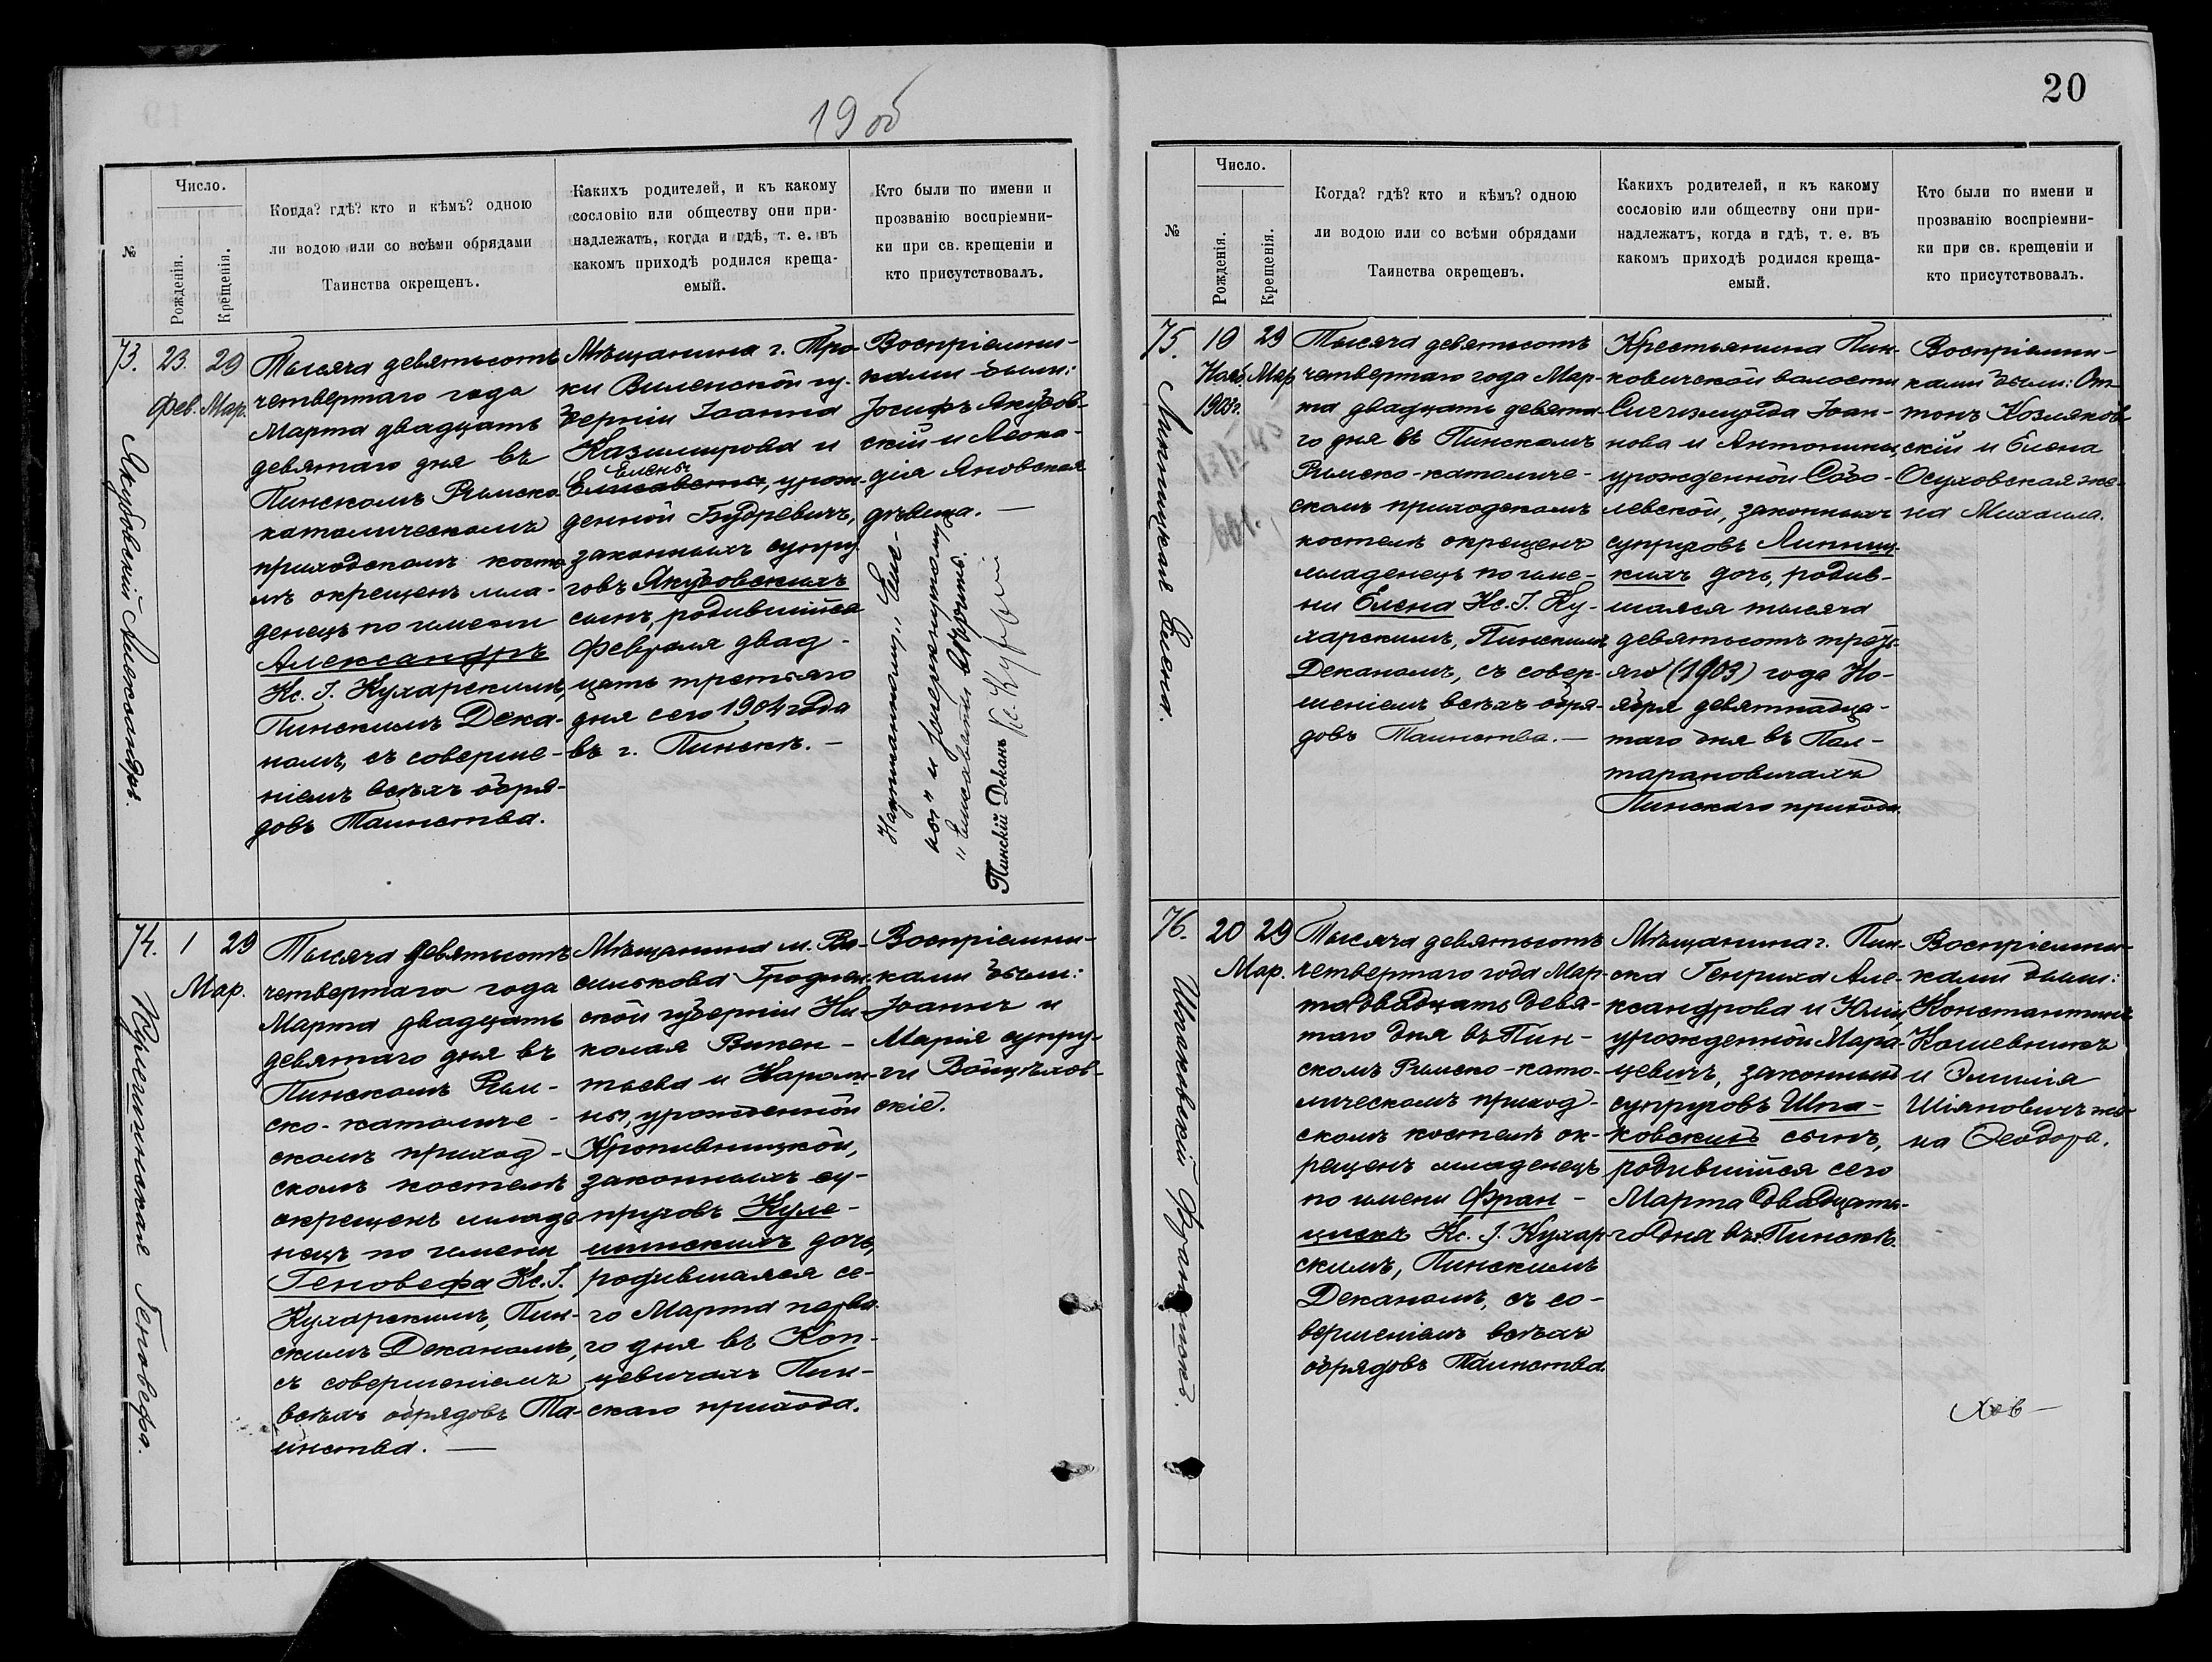 19 об
№
Число.
Рожденія.
Крещенія.
Когда? гдѣ? кто и кѣмъ? одною
ли водою или со всѣми обрядами
Таинства окрещенъ.
Какихъ родителей, и къ какому
сословію или обществу они при-
надлежатъ, когда и гдѣ, т. е. въ
какомъ приходѣ родился креща-
емый.
Кто были по имени и
прозванію воспріемни-
ки при св. крещеніи и
кто присутствовалъ.
73.
Якубовскій Александръ.
23.
Фев.
29
Мар.
Тысяча девятьсотъ
четвертаго года
Марта двадцать
девятаго дня въ
Пинскомъ Римско-
католическомъ
приходскомъ косте-
лѣ окрещенъ мла-
денецъ по имени
Александръ
Кс. І. Кухарскимъ,
Пинскимъ Дека-
номъ, съ соверше-
ніемъ всѣхъ обря-
довъ Таинства.
Мѣщанина г. Тро-
ки Виленской гу-
берніи Іоанна
Казимирова и
Елены
Елисаветы, урож-
денной Будревичъ,
законныхъ супру-
говъ Якубовскихъ
сынъ, родившійся
Февраля двад-
цать третьяго
дня сего 1904 года
въ г. Пинскѣ. —
Воспріемни-
ками были:
Іосифъ Якубов-
скій и Леока-
дія Яновская
дѣвица. —
Надписанному „Еле-
ны" и зачеркнутому
„Елисаветы" вѣрить.
Пинскій Деканъ Кс.
74.
Кулешинская Геновефа.
1
29
Мар.
Тысяча девятьсотъ
четвертаго года
Марта двадцать
девятаго дня въ
Пинскомъ Рим-
ско-католиче-
скомъ приход-
скомъ костелѣ
окрещенъ младе-
нецъ по имени
Геновефа Кс. І.
Кухарскимъ, Пин-
скимъ Деканомъ,
съ совершеніемъ
всѣхъ обрядовъ Та-
инства. —
Мѣщанина м. Ва-
силькова Гроднен-
ской губерніи Ни-
колая Викен-
тьева и Кароли-
ны, урожденной
Кропивницкой,
законныхъ су-
пруговъ Куле-
шинскихъ дочь,
родившаяся се-
го Марта перва-
го дня въ Коп-
цевичахъ Пин-
скаго прихода.
Воспріемни-
ками были:
Іоаннъ и
Марія супру-
ги Войцѣхов-
скіе.
20
№
Число.
Рожденія.
Крещенія.
Когда? гдѣ? кто и кѣмъ? одною
ли водою или со всѣми обрядами
Таинства окрещенъ.
Какихъ родителей, и къ какому
сословію или обществу они при-
надлежатъ, когда и гдѣ, т. е. въ
какомъ приходѣ родился креща-
емый.
Кто были по имени и
прозванію воспріемни-
ки при св. крещеніи и
кто присутствовалъ.
75.
Липницкая Елена.
19
Нояб.
1903г.
29
Мар
Тысяча девятьсотъ
четвертаго года Мар-
та двадцать девята-
го дня въ Пинскомъ
Римско-католиче-
скомъ приходскомъ
костелѣ окрещенъ
младенецъ по име-
ни Елена Кс. І. Ку-
харскимъ, Пинскимъ
Деканомъ, съ совер-
шеніемъ всѣхъ обря-
довъ Таинства. —
Крестьянина Пин-
ковичской волости
Сигизмунда Іоан-
нова и Антонины,
урожденной Собо-
левской, законныхъ
супруговъ Липниц-
кихъ дочь, родив-
шаяся тысяча
девятьсотъ треть-
яго (1903) года Но-
ября девятнадца-
таго дня въ Пол-
тарановичахъ
Пинскаго прихода.
Воспріемни-
ками были: Ан-
тонъ Козляков-
скій и Елена
Осуховская же-
на Михаила.
76.
Шпаковскій Францискъ.
20
29
Мар.
Тысяча девятьсотъ
четвертаго года Мар-
та двадцать девя-
таго дня въ Пин-
скомъ Римско-като-
лическомъ приход-
скомъ костелѣ ок-
рещенъ младенецъ
по имени Фран-
цискъ Кс. І. Кухар-
скимъ, Пинскимъ
Деканомъ, съ со-
вершеніемъ всѣхъ
обрядовъ Таинства.
Мѣщанина г. Пин-
ска Генриха Але-
ксандрова и Юліи,
урожденной Мара-
цевичъ, законныхъ
супруговъ Шпа-
ковскихъ сынъ,
родившійся сего
Марта двадцата-
го дня въ г. Пинскѣ.
Воспріемни-
ками были:
Константинъ
Кошевникъ
и Эмилія
Шіяновичъ же-
на Ѳеодора.